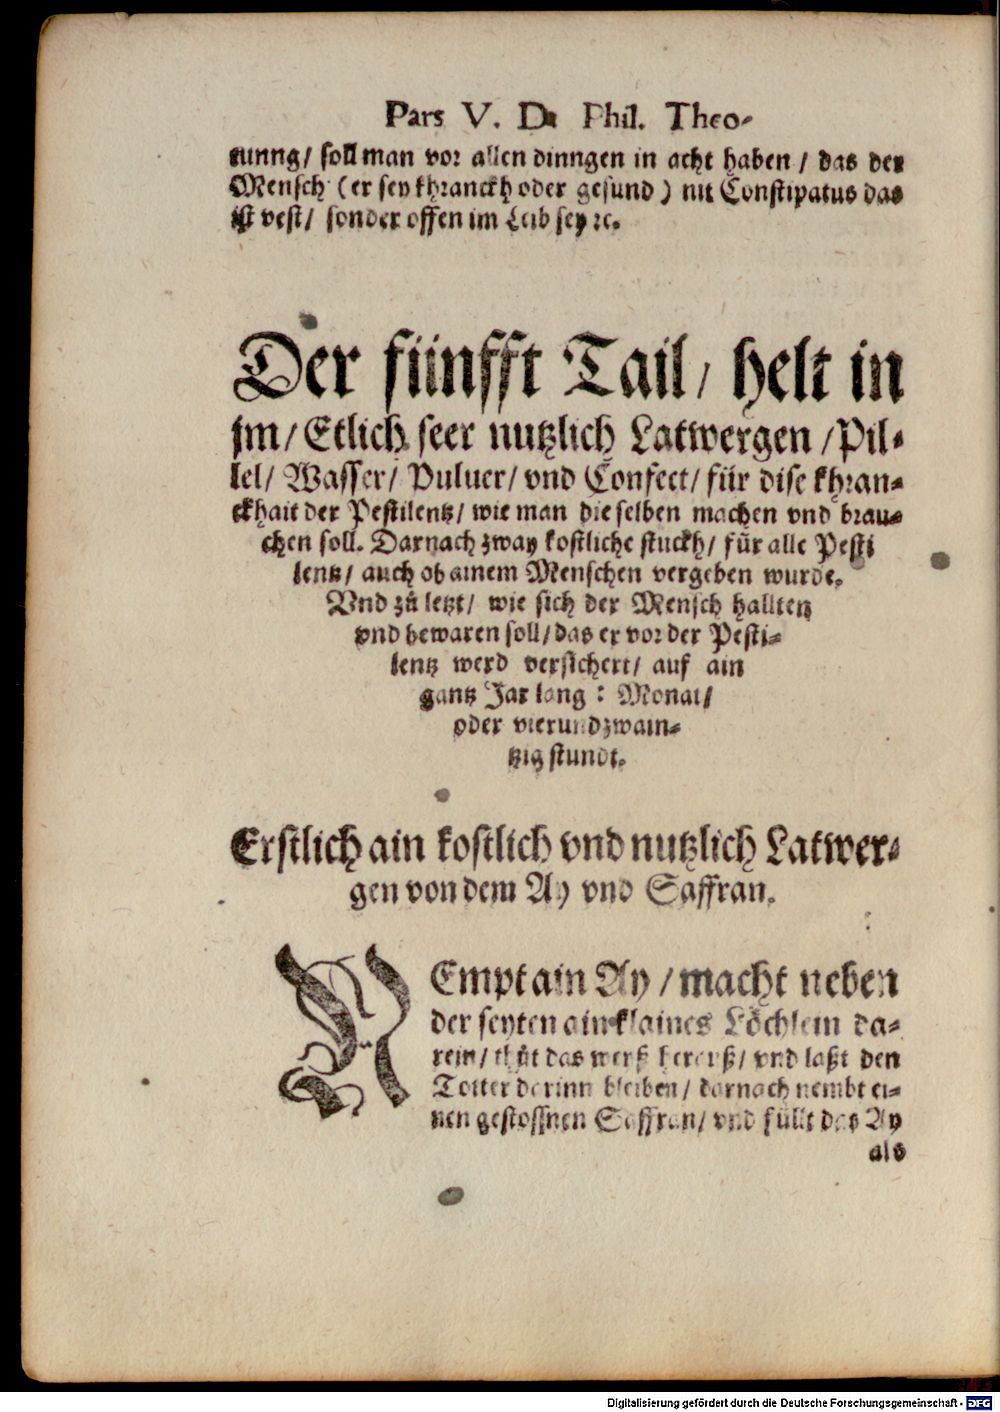 Pars V. D. Phil. Theo-
nunng/ soll man vor allen dinngen in acht haben / das der
Mensch (er sey khranckh oder gesund) nit Constipatus das
ist vest/ sonder offen im Leib sey ꝛc.
Der fünfft Tail/ helt in
jm/ Etlich seer nutzlich Latwergen /Pil-
lel/ Wasser/ Puluer/ vnd Confect/ für dise khran-
ckhait der Pestilentz/ wie man die selben machen vnd brau-
chen soll. Darnach zway kostliche stuckh/ für alle Pesti
lentz/ auch ob ainem Menschen vergeben wurde.
Vnd zů letzt/ wie sich der Mensch halltetz
vnd bewaren soll/ das er vor der Pesti-
lentz werd versichert/ auf ain
gantz Jar lang : Monat/
oder vierundzwain-
tzig stundt.
Erstlich ain kostlich vnd nutzlich Latwer-
gen von dem Ay vnd Saffran.
NEmpt ain Ay / macht neben
der seyten ain klaines Löchlein da-
rein/ thůt das weyß herauß/ vnd laßt den
Totter darinn bleiben/ darnach nembt ei-
nen gestossnen Saffran/ vnd füllt das Ay
als
Digitalisierung gefördert durch die Deutsche Forschungsgemeinschaft - DFG